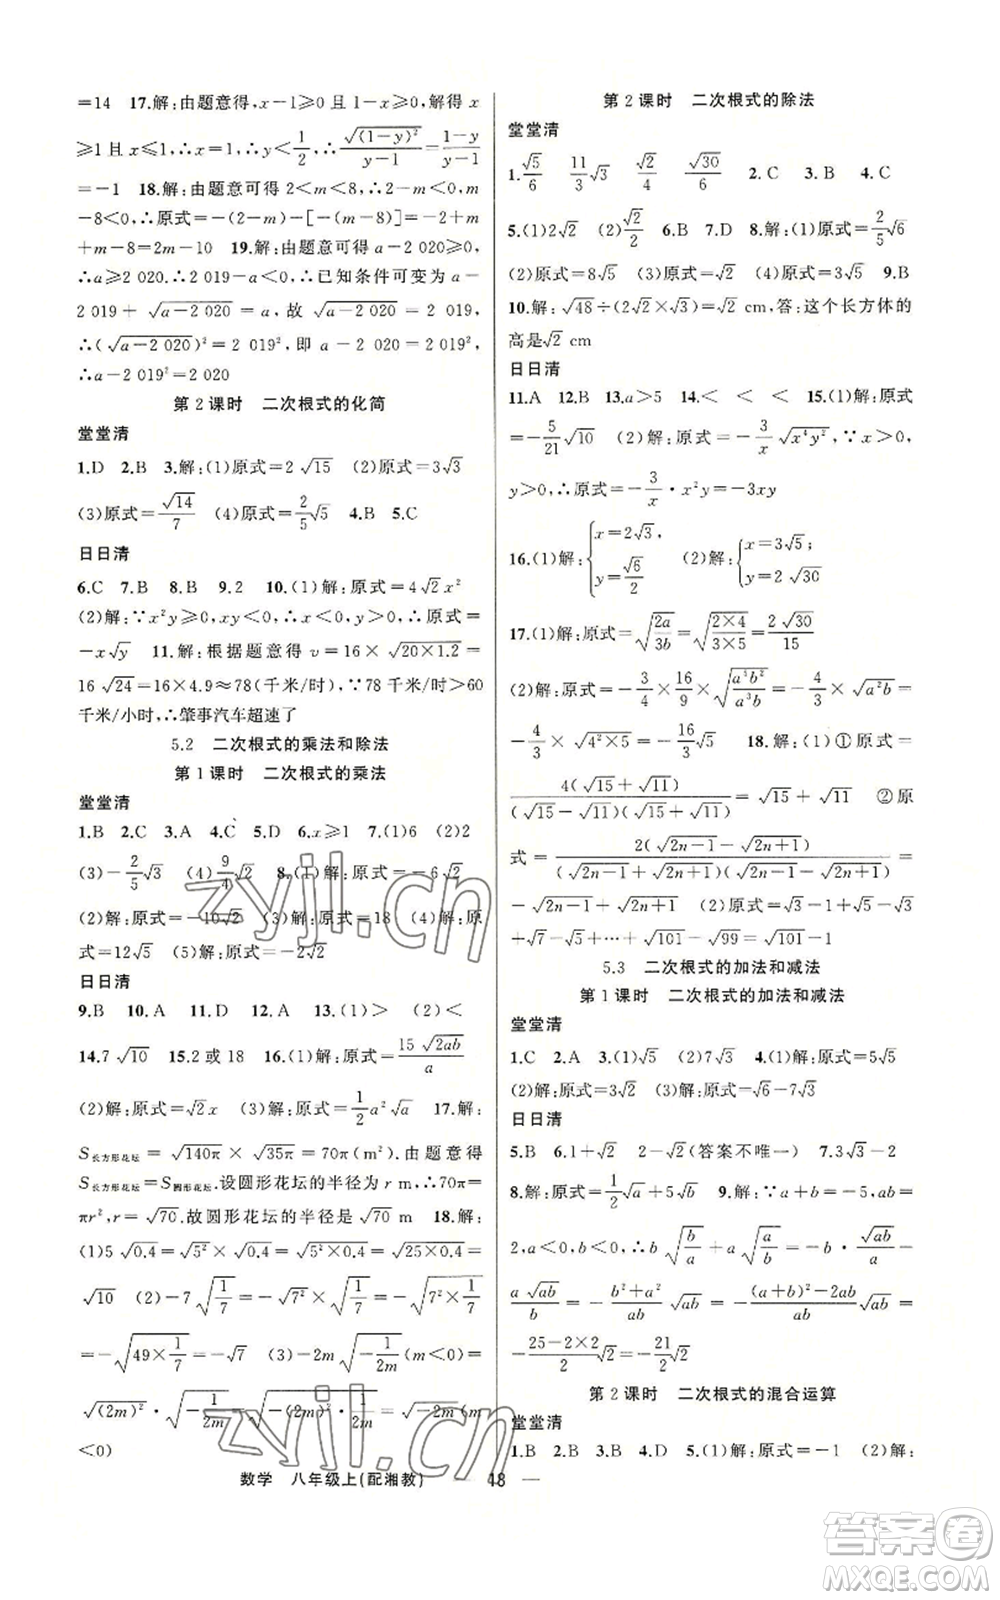 =14　17.解:由题意得,x-1≥0 且 1-x≥0,解得 x
≥1 且 x≤1,∴x=1,∴y<1/2,∴√((1-y)²)/(y-1)=(1-y)/(y-1)
=-1　18.解:由题意可得 2<m<8,∴2-m<0,m
-8<0,∴原式=-(2-m)-[-(m-8)]=-2+m
+m-8=2m-10　19.解:由题意可得 a-2 020≥0,
∴a≥2 020,∴2 019-a<0,∴已知条件可变为 a-
2 019+√(a-2 020)=a,故 √(a-2 020)=2 019,
∴(√(a-2 020))²=2 019²,即 a-2 020=2 019²,
∴a-2 019²=2 020
第 2 课时　二次根式的化简
堂堂清
1.D　2.B　3.解:(1)原式=2√15　(2)原式=3√3
(3)原式=√14/7　(4)原式=2/5√5　4.B　5.C
日日清
6.C　7.B　8.B　9.2　10.(1)解:原式=4√2x²
(2)解:∵x²y≥0,xy<0,∴x<0,y>0,∴原式=
-x√y　11.解:根据题意得 v=16×√(20×1.2)=
16√24=16×4.9≈78(千米/时),∵78 千米/时>60
千米/小时,∴肇事汽车超速了
5.2　二次根式的乘法和除法
第 1 课时　二次根式的乘法
堂堂清
1.B　2.C　3.A　4.C　5.D　6.x≥1　7.(1)6　(2)2
(3)-2/5√3　(4)9/4√2　8.(1)解:原式=-6√2
(2)解:原式=-10√2　(3)解:原式=18　(4)解:原
式=12√5　(5)解:原式=-2√2
日日清
9.B　10.A　11.D　12.A　13.(1)>　(2)<
14.7√10　15.2 或 18　16.(1)解:原式=15√(2ab)/a
(2)解:原式=√2x　(3)解:原式=1/2a²√a　17.解:
S长方形花坛=√(140π)×√(35π)=70π(m²).由题意得
S长方形花坛=S圆形花坛,设圆形花坛的半径为 r m,∴70π=
πr²,r=√70.故圆形花坛的半径是√70 m　18.解:
(1)5√0.4=√5²×√0.4=√(5²×0.4)=√(25×0.4)=
√10　(2)-7√(1/7)=-√7²×√(1/7)=-√(7²×1/7)
=-√(49×1/7)=-√7　(3)-2m√(-1/2m)(m<0)=
√((2m)²)·√(-1/2m)=√(-(2m)²·1/2m)=√(-2m)(m
<0)
第 2 课时　二次根式的除法
堂堂清
1.√5/6　11/3√3　√2/4　√30/6　2.C　3.B　4.C
5.(1)2√2　(2)√2/2　6.B　7.D　8.解:(1)原式=2/5√6
(2)原式=8√5　(3)原式=√2　(4)原式=3√5　9.B
10.解:√48÷(2√2×√3)=√2 cm,答:这个长方体的
高是√2 cm
日日清
11.A　12.B　13.a>5　14.<　<　<　15.(1)解:原式
=-5/21√10　(2)解:原式=-3/x√(x⁴y²),∵x>0,
y>0,∴原式=-3/x·x²y=-3xy
16.(1)解:{x=2√3, y=√6/2　(2)解:{x=3√5; y=2√30
17.(1)解:原式=√(2a/3b)=√((2×4)/(3×5))=2√30/15
(2)解:原式=-3/4×16/9×√(a⁴b²/a³b)=-4/3×√(a²b)=
-4/3×√(4²×5)=-16/3√5　18.解:(1)①原式=
4(√15+√11)/((√15-√11)(√15+√11))=√15+√11　②原
式=2(√(2n-1)-√(2n+1))/((√(2n-1)+√(2n+1))(√(2n-1)-√(2n+1)))=
-√(2n-1)+√(2n+1)　(2)原式=√3-1+√5-√3
+√7-√5+…+√101-√99=√101-1
5.3　二次根式的加法和减法
第 1 课时　二次根式的加法和减法
堂堂清
1.C　2.A　3.(1)√5　(2)7√3　4.(1)解:原式=5√5
(2)解:原式=3√2　(3)解:原式=√6-7√3
日日清
5.B　6.1+√2　2-√2(答案不唯一)　7.3√3-2
8.解:原式=1/2√a+5√5　9.解:∵a+b=-5,ab=
2,a<0,b<0,∴b√(b/a)+a√(a/b)=-b·√(ab)/a-
a√(ab)/b=-(b²+a²)/ab√(ab)=-((a+b)²-2ab)/ab√(ab)=
-(25-2×2)/2√2=-21/2√2
第 2 课时　二次根式的混合运算
堂堂清
1.B　2.B　3.D　4.B　5.(1)解:原式=-1　(2)解:
数学　八年级上(配湘教)　48
zyjl.cn
zyjl.cn
答案圈
MXQE.COM